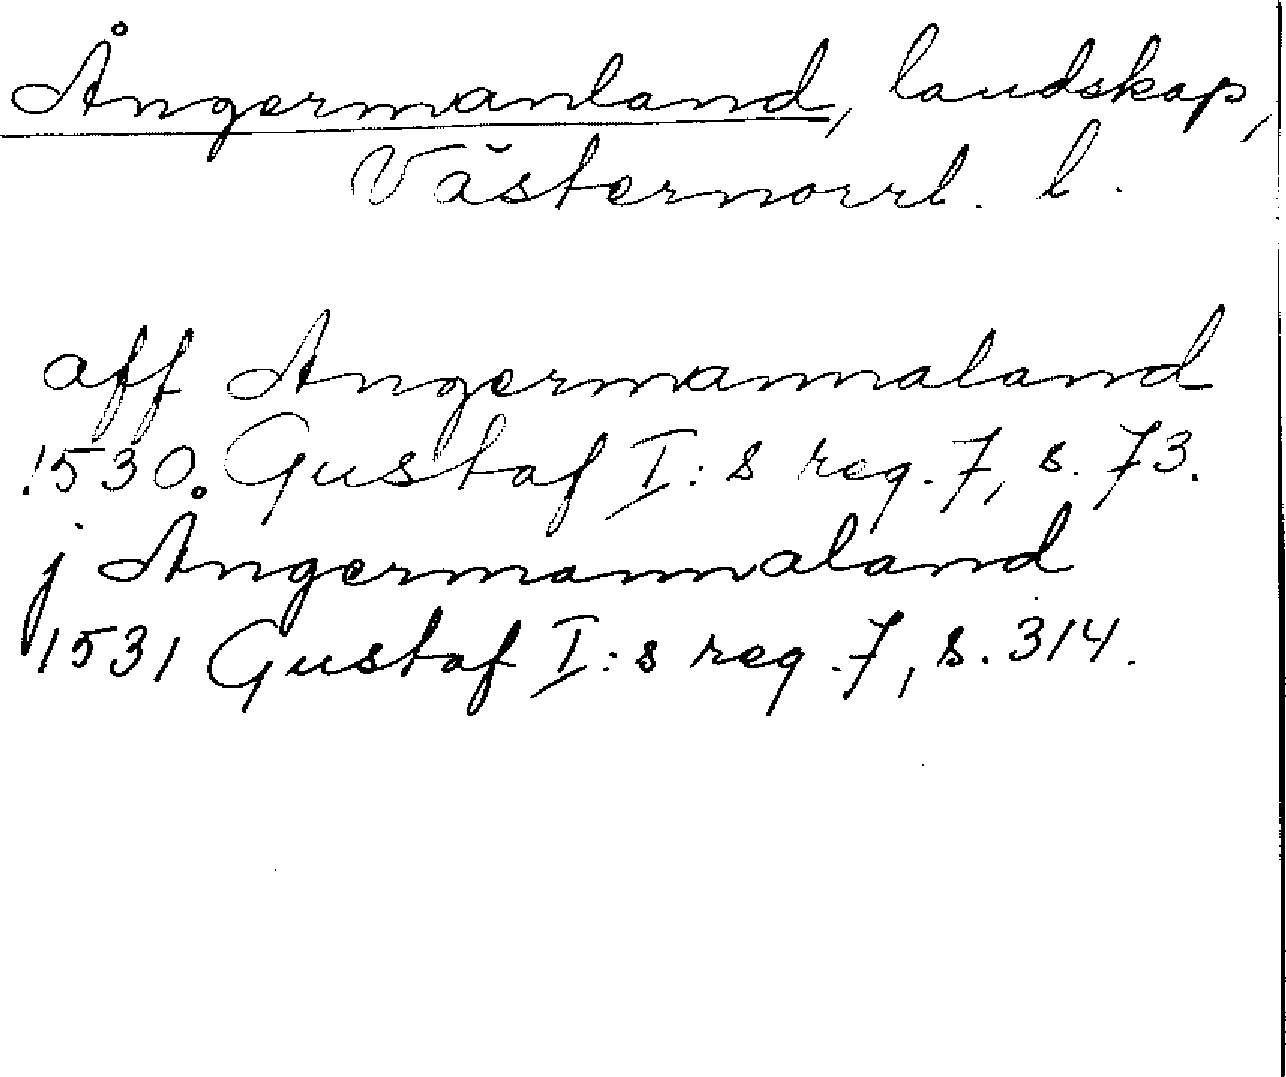 Ångermanland, landskap,
Västernorrl. l.
aff Angermannaland
1530. Gustaf I:s reg. 7, s. 73.
j Ångermannaland
1531 Gustaf I:s reg. 7, s. 314.